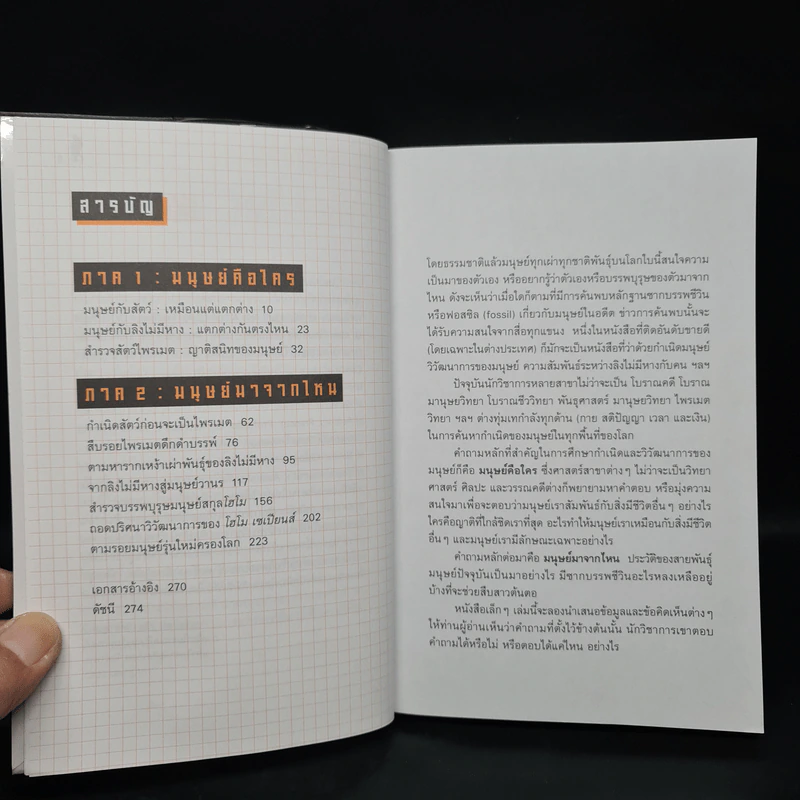 สารบัญ
ภาค 1 : มนุษย์คือใคร
มนุษย์กับสัตว์ : เหมือนแต่แตกต่าง 10
มนุษย์กับลิงไม่มีหาง : แตกต่างกันตรงไหน 23
สำรวจสัตว์ไพรเมต : ญาติสนิทของมนุษย์ 32
ภาค 2 : มนุษย์มาจากไหน
กำเนิดสัตว์ก่อนจะเป็นไพรเมต 62
สืบรอยไพรเมตดึกดำบรรพ์ 76
ตามหารากเหง้าเผ่าพันธุ์ของลิงไม่มีหาง 95
จากลิงไม่มีหางสู่มนุษย์วานร 117
สำรวจบรรพบุรุษมนุษย์สกุลโฮโม 156
ถอดปริศนาวิวัฒนาการของ โฮโม เซเปียนส์ 202
ตามรอยมนุษย์รุ่นใหม่ครองโลก 223
เอกสารอ้างอิง 270
ดัชนี 274
โดยธรรมชาติแล้วมนุษย์ทุกเผ่าทุกชาติพันธุ์บนโลกใบนี้สนใจความ
เป็นมาของตัวเอง หรืออยากรู้ว่าตัวเองหรือบรรพบุรุษของตัวมาจาก
ไหน ดังจะเห็นว่าเมื่อใดก็ตามที่มีการค้นพบหลักฐานซากบรรพชีวิน
หรือฟอสซิล (fossil) เกี่ยวกับมนุษย์ในอดีต ข่าวการค้นพบนั้นจะ
ได้รับความสนใจจากสื่อทุกแขนง หนึ่งในหนังสือที่ติดอันดับขายดี
(โดยเฉพาะในต่างประเทศ) ก็มักจะเป็นหนังสือที่ว่าด้วยกำเนิดมนุษย์
วิวัฒนาการของมนุษย์ ความสัมพันธ์ระหว่างลิงไม่มีหางกับคน ฯลฯ
ปัจจุบันนักวิชาการหลายสาขาไม่ว่าจะเป็น โบราณคดี โบราณ
มานุษยวิทยา โบราณชีววิทยา พันธุศาสตร์ มานุษยวิทยา ไพรเมต
วิทยา ฯลฯ ต่างทุ่มเทกำลังทุกด้าน (กาย สติปัญญา เวลา และเงิน)
ในการค้นหากำเนิดของมนุษย์ในทุกพื้นที่ของโลก
คำถามหลักที่สำคัญในการศึกษากำเนิดและวิวัฒนาการของ
มนุษย์ก็คือ มนุษย์คือใคร ซึ่งศาสตร์สาขาต่างๆ ไม่ว่าจะเป็นวิทยา
ศาสตร์ ศิลปะ และวรรณคดีต่างก็พยายามหาคำตอบ หรือมุ่งความ
สนใจมาเพื่อจะตอบว่ามนุษย์เราสัมพันธ์กับสิ่งมีชีวิตอื่นๆ อย่างไร
ใครคือญาติที่ใกล้ชิดเราที่สุด อะไรทำให้มนุษย์เราเหมือนกับสิ่งมีชีวิต
อื่นๆ และมนุษย์เรามีลักษณะเฉพาะอย่างไร
คำถามหลักต่อมาคือ มนุษย์มาจากไหน ประวัติของสายพันธุ์
มนุษย์ปัจจุบันเป็นมาอย่างไร มีซากบรรพชีวินอะไรหลงเหลืออยู่
บ้างที่จะช่วยสืบสาวต้นตอ
หนังสือเล็กๆ เล่มนี้จะลองนำเสนอข้อมูลและข้อคิดเห็นต่างๆ
ให้ท่านผู้อ่านเห็นว่าคำถามที่ตั้งไว้ข้างต้นนั้น นักวิชาการเขาตอบ
คำถามได้หรือไม่ หรือตอบได้แค่ไหน อย่างไร